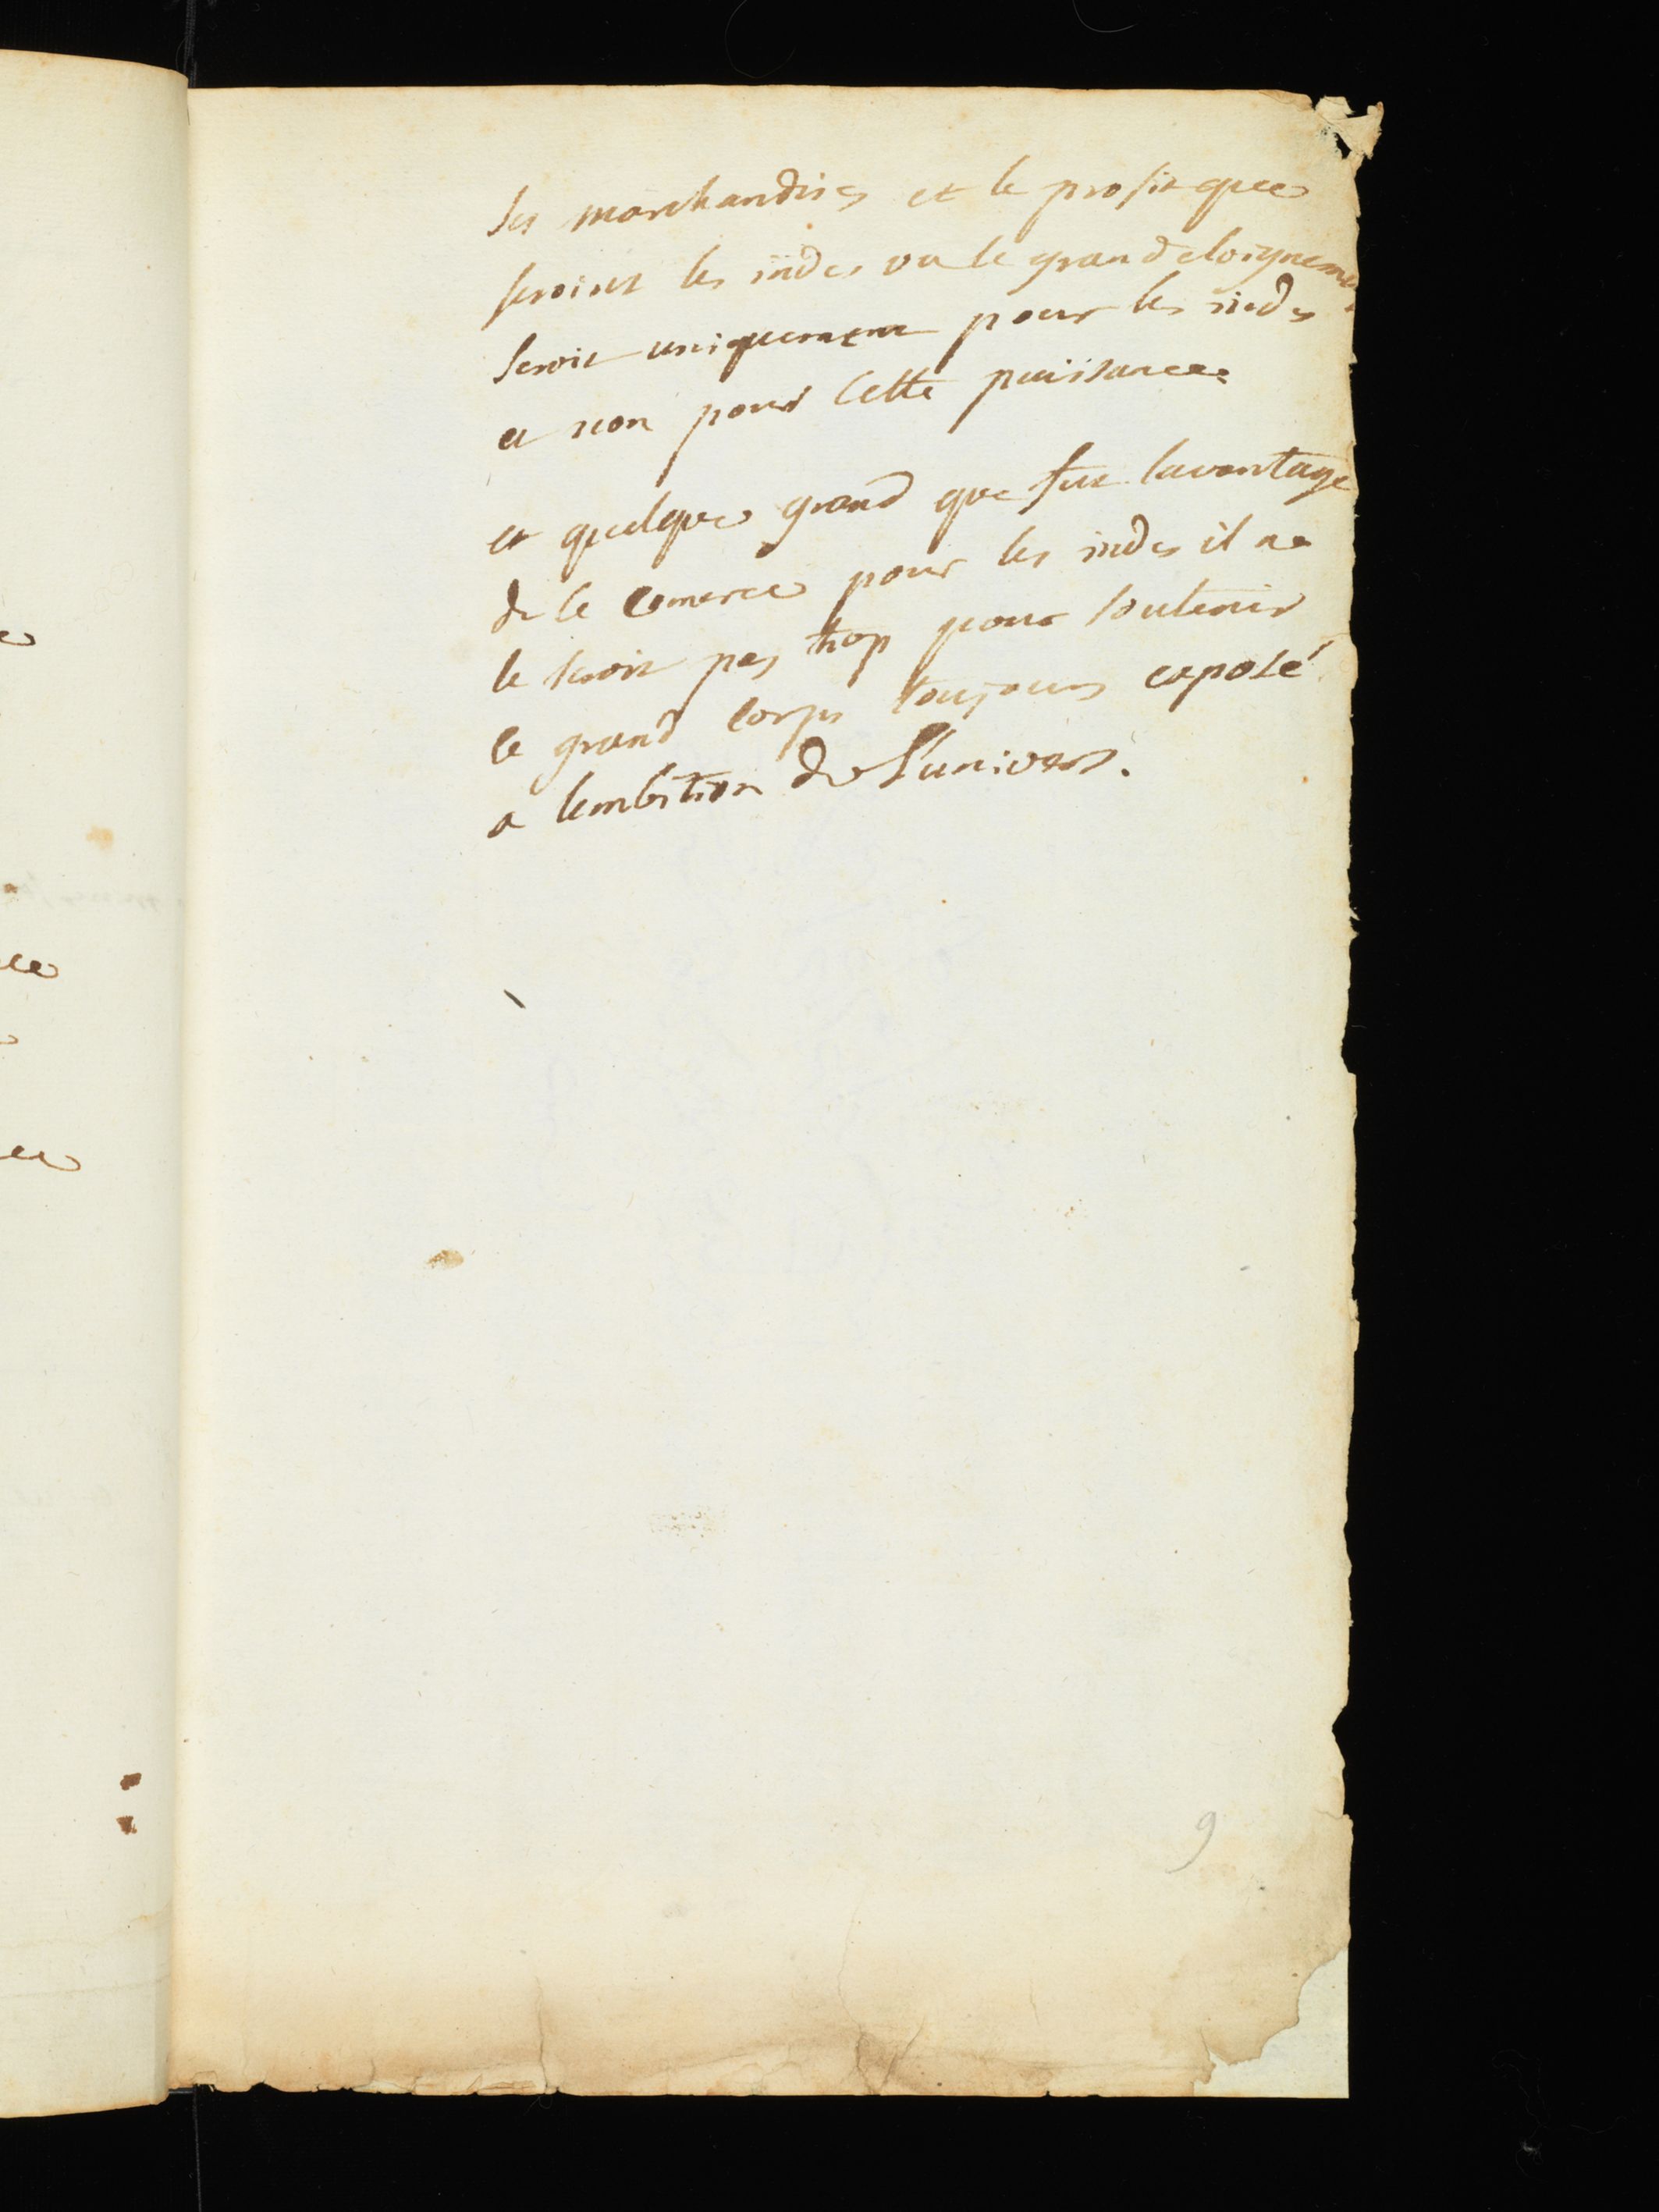 ses marchandises et le profit que
feroint les indes vu le grand eloigneme
seroit uniquement pour les indes
et non pour cette puissance
et quelque grand que fut lavantage
de ce comerce pour les indes il ne
le seroit pas trop pour soutenir
ce grand corps toujours exposé
a lembition de l'univers.
9